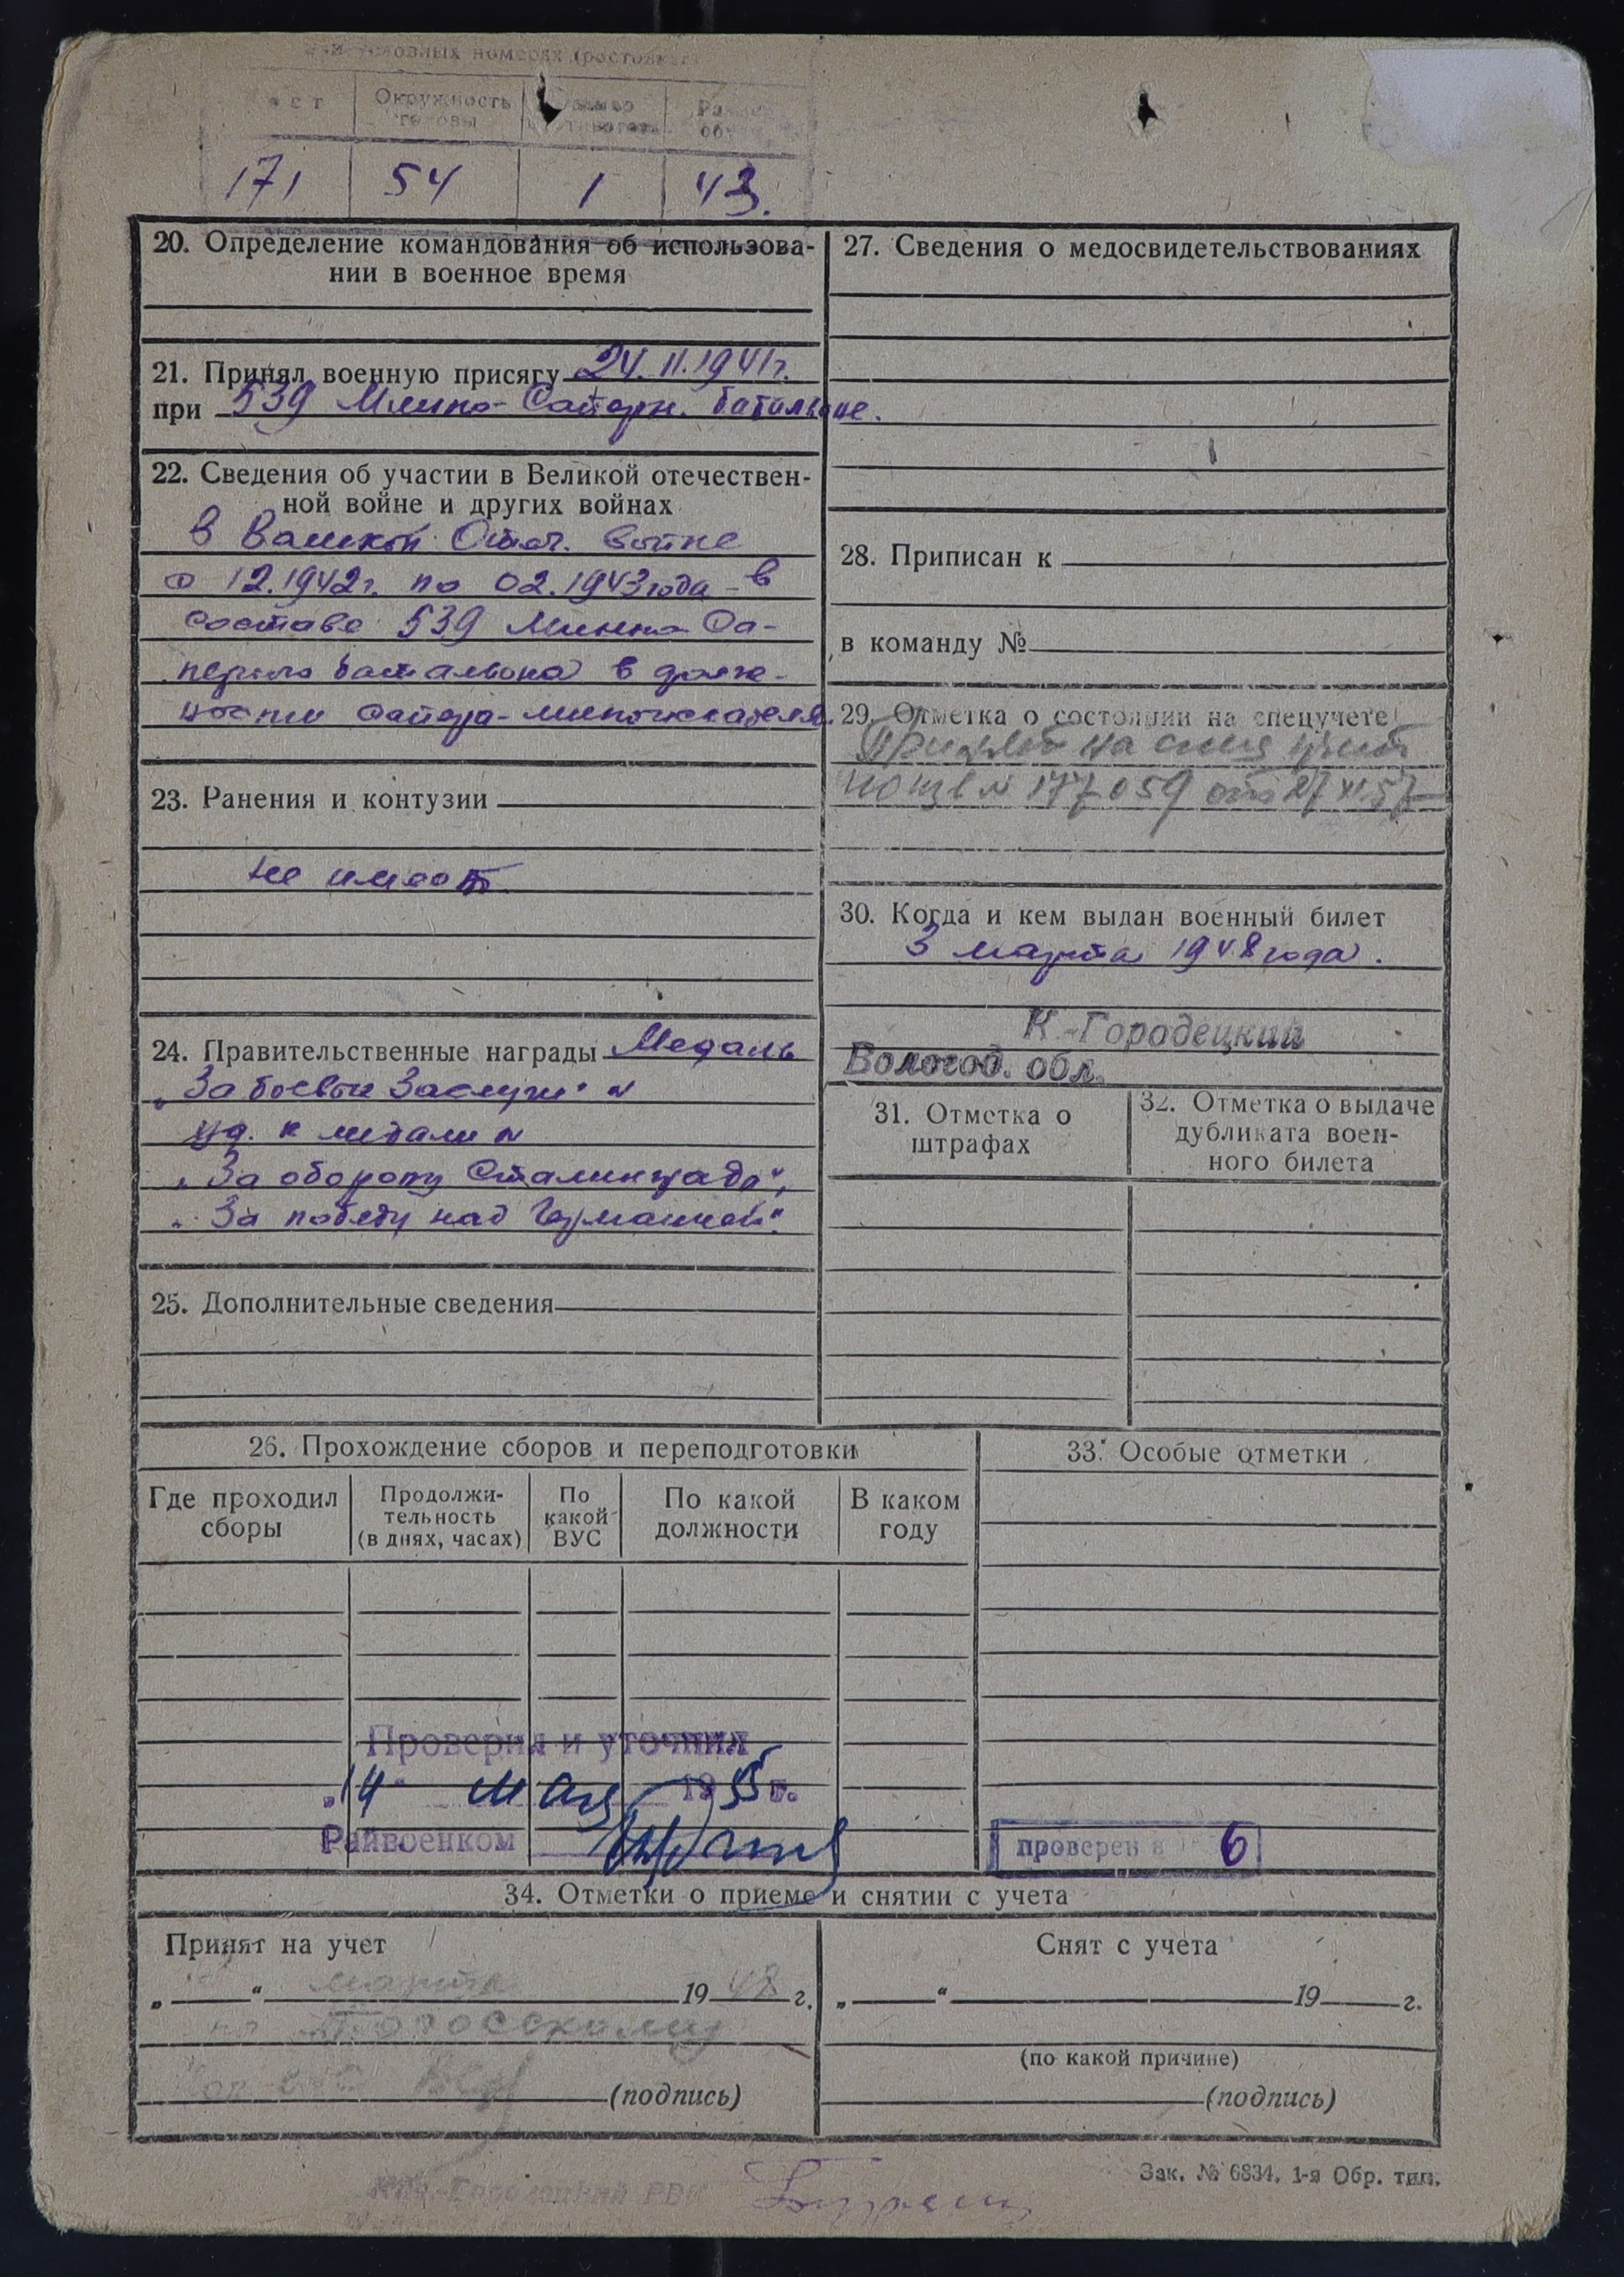 условных номерах (ростовках)
Окружность головы
171 54 1 43.
20. Определение командования об использова-
нии в военное время
21. Принял военную присягу 24.11.1941г.
при 539 Минно-Саперн. батальоне.
22. Сведения об участии в Великой отечествен-
ной войне и других войнах
В Великой Отеч. войне
с 12.1942г. по 02.1943 года - в
составе 539 Минно-Са-
перного батальона в долж-
ности сапера-миноискателя.
23. Ранения и контузии
Не имеет
24. Правительственные награды Медаль
„За боевые Заслуги" №
уд. к медали №
„За оборону Сталинграда",
„За победу над Германией".
25. Дополнительные сведения
26. Прохождение сборов и переподготовки
Где проходил сборы
Продолжи-тельность (в днях, часах)
По какой ВУС
По какой должности
В каком году
Проверил и уточнил
„14" мая 1955 г.
Райвоенком
27. Сведения о медосвидетельствованиях
28. Приписан к
в команду №
29. Отметка о состоянии на спецучете
Принят на спец учет
по изв № 177059 от 27 XI 57
30. Когда и кем выдан военный билет
3 марта 1948 года.
К.-Городецкий
Вологод. обл.
31. Отметка о
штрафах
32. Отметка о выдаче
дубликата воен-
ного билета
33. Особые отметки
проверен в 6
34. Отметки о приеме и снятии с учета
Принят на учет
„ " марта 1948 г.
(подпись)
Снят с учета
„ " 19 г.
(по какой причине)
(подпись)
Зак. № 6834. 1-я Обр. тип.
Кич.-Городецкий РВК